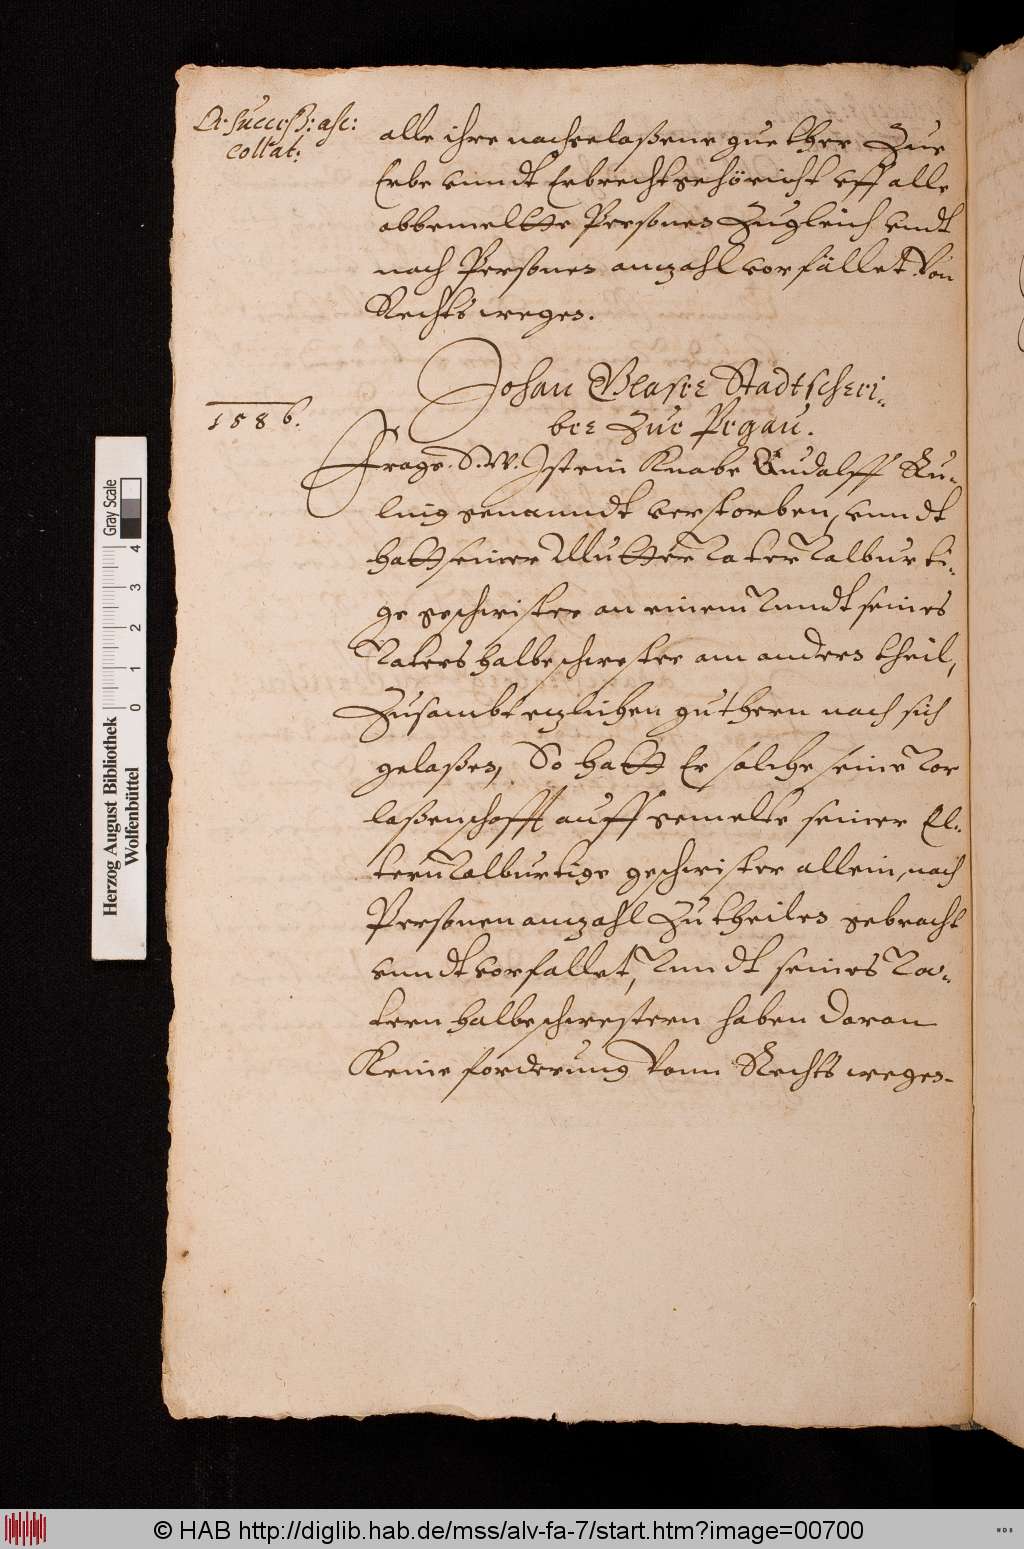 De Success: asc:
collat:
alle ihre nachgelaßene guether Zue
Erbe unndt Erbrecht gehöricht uff alle
obbemeltte Personen Zugleich undt
nach Personen anzahl vorfället Von
Rechts wegen.
Johan Blasie Stadtschrei-
ber Zue Pegau.
1586.
Frage. S. W. Ist ein Knabe Rudalff Ru-
genanndt verstorben, unndt
hatt seiner Mutter Vater Volburti-
ge geschwister an einem Vnndt seines
Vaters halbeschwester am andern theil,
Zusambt etzlichen guthern nach sich
gelaßen, So hatt Er solche seine Vor
laßenschafft auff gemelte seiner El-
tern Volburtige geschwister allein, nach
Personen anzahl Zu theilen gebracht
unndt vorfallet, Vnndt seines Va-
tern halbeschwestern haben daran
Keine forderung Vonn Rechts wegen.
Herzog August Bibliothek
Wolfenbüttel
0 1 2 3 4
Gray Scale
© HAB http://diglib.hab.de/mss/alv-fa-7/start.htm?image=00700